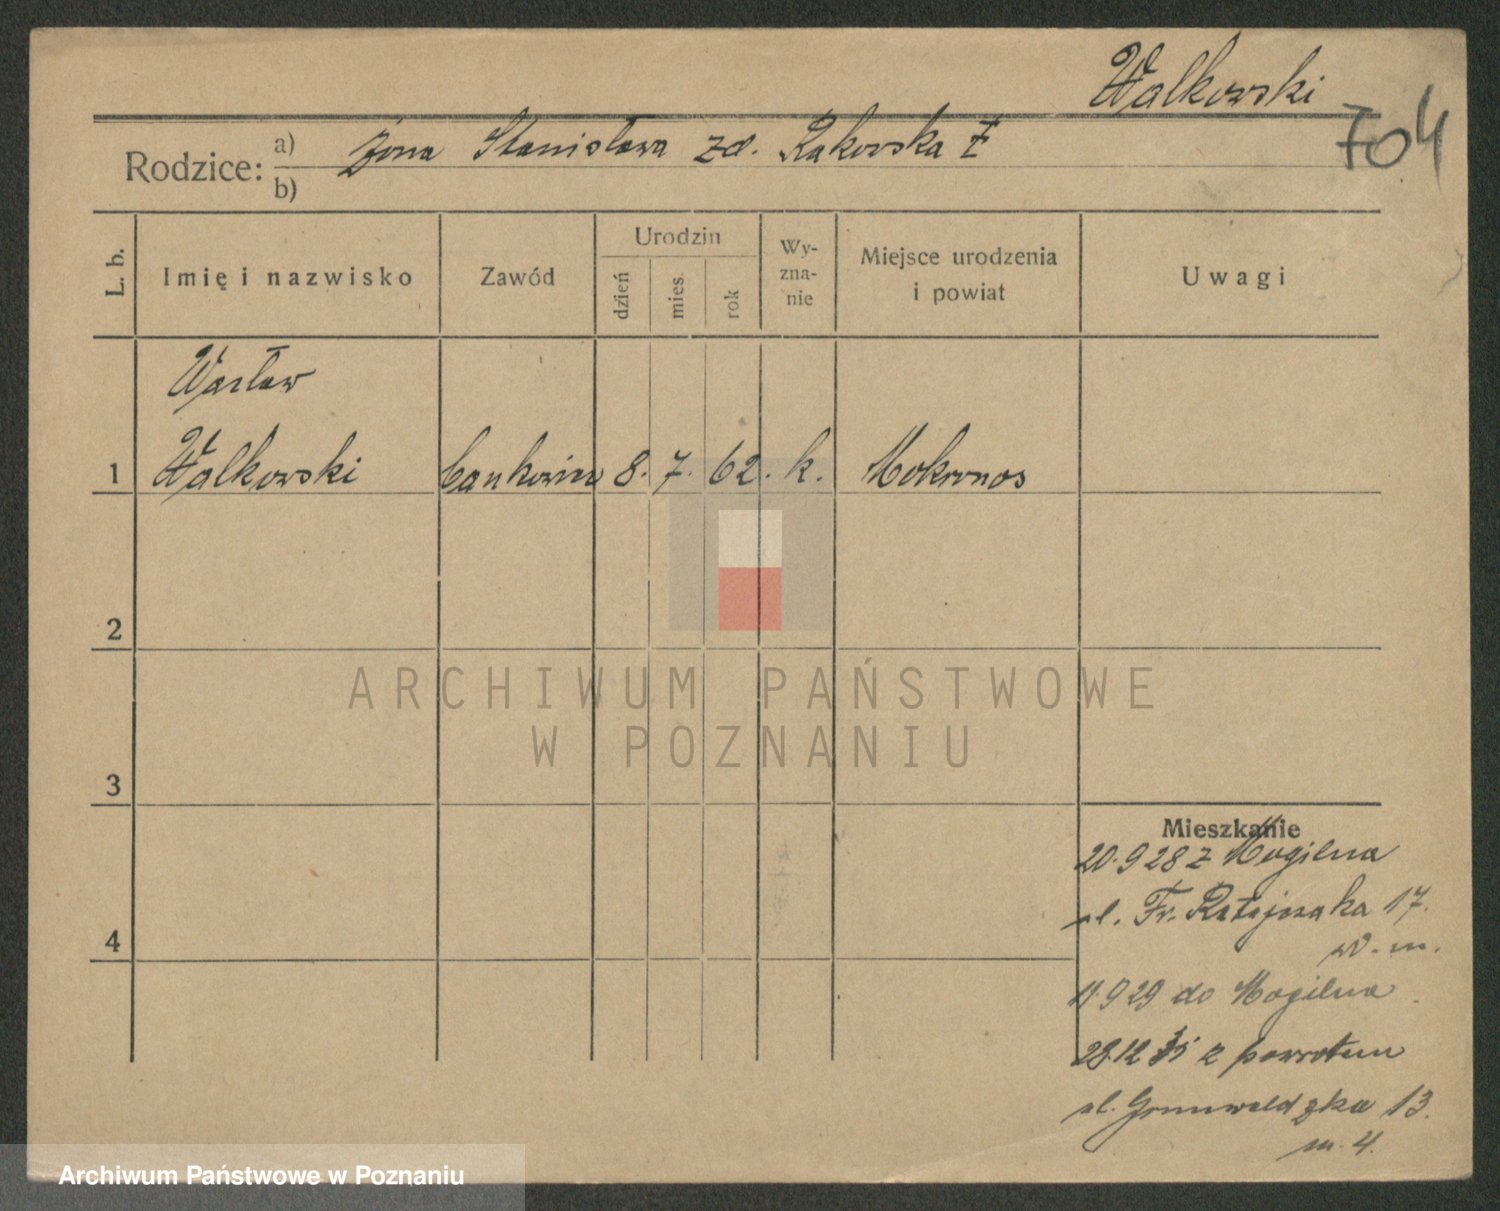 Walkowski
704
Rodzice: a) żona Stanisława zd. Rakowska Ł
b)
L. b.
Imię i nazwisko
Zawód
Urodzin
dzień
mies.
rok
Wy-
zna-
nie
Miejsce urodzenia
i powiat
Uwagi
Wacław
1 Walkowski 8. 7. 62. k. Mokronos
2
3
4
Mieszkanie
20.9 28 z Mogilna
ul. Fr. Ratajczaka 17.
11.9 29 do Mogilna
28.12 35 z powrotem
ul. Grunwaldzka 13.
m. 4.
ARCHIWUM PAŃSTWOWE
W POZNANIU
Archiwum Państwowe w Poznaniu